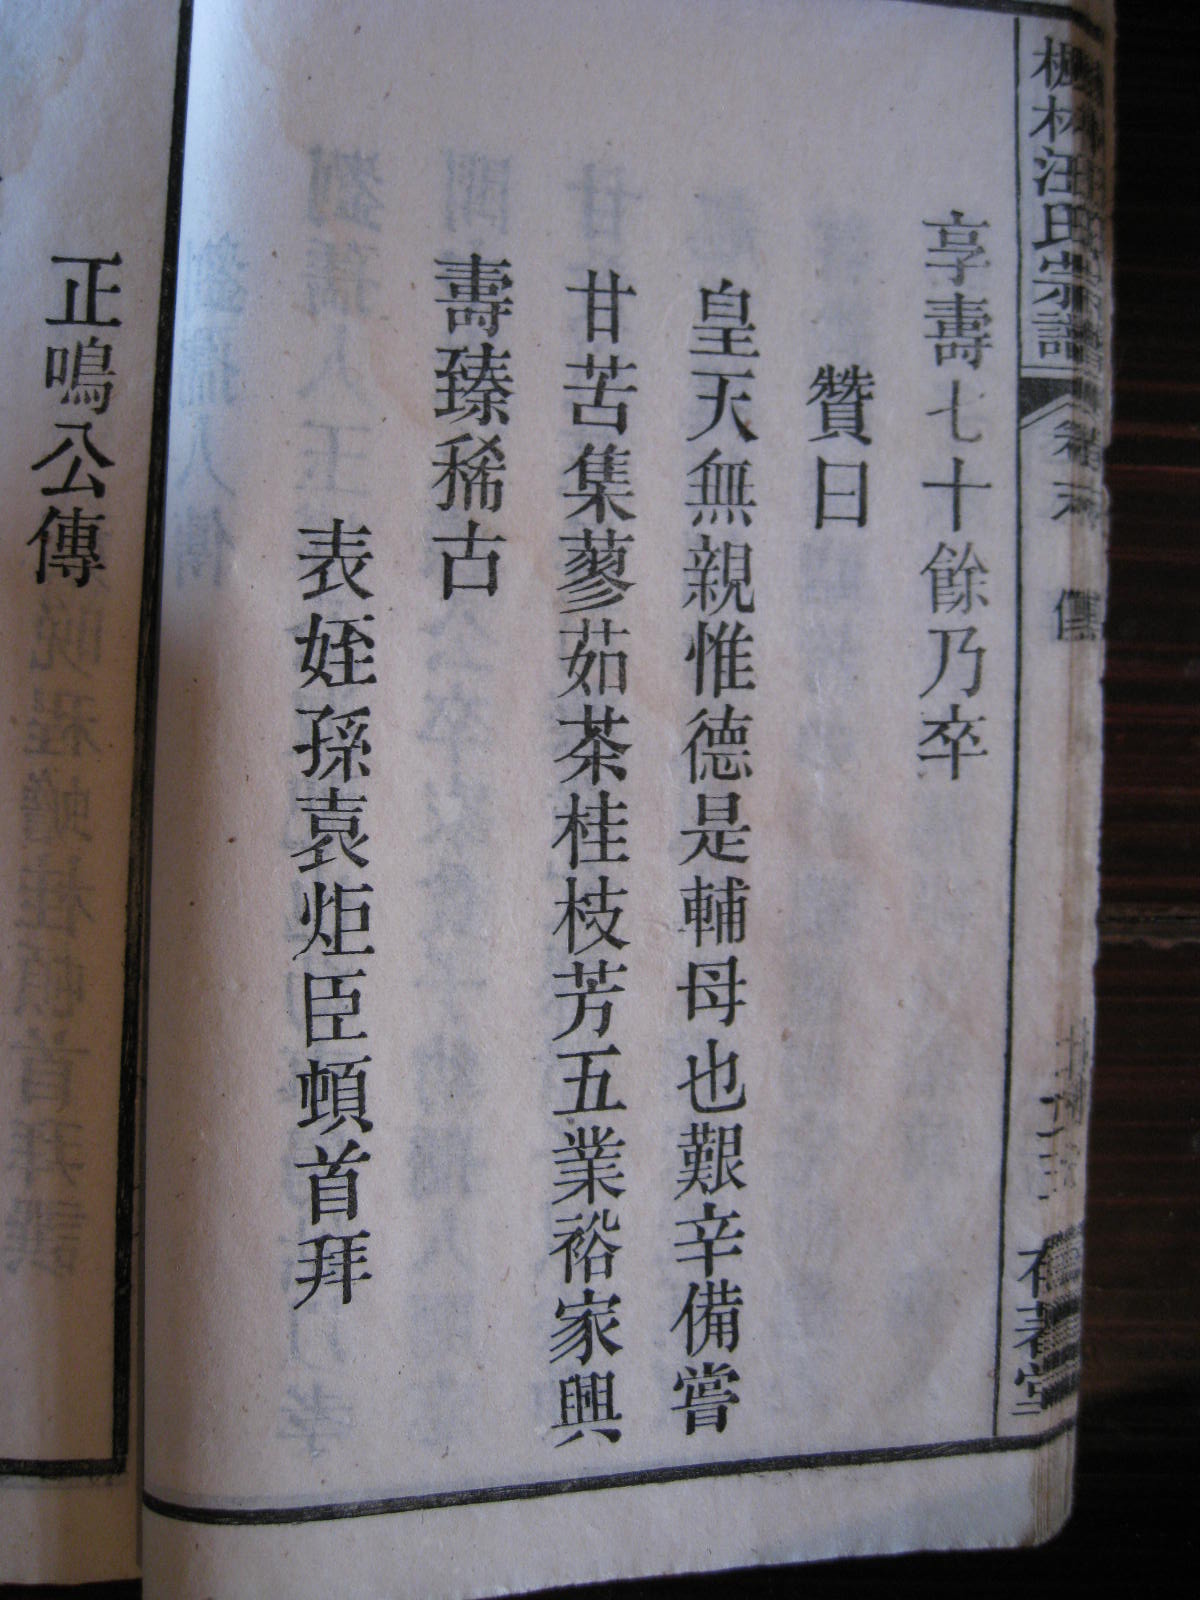 林汪氏宗譜
傳
享壽七十餘乃卒
贊曰
皇天無親惟德是輔母也艱辛備嘗
甘苦集蓼茹茶桂枝芳五業裕家興
壽臻稀古
表姪孫袁炬臣頓首拜
正鳴公傳